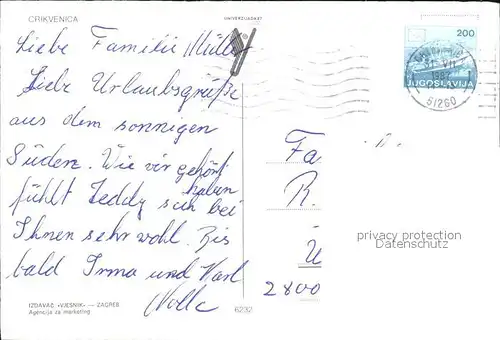 CRIKVENICA
UNIVERZIJADA 87
200
JUGOSLAVIJA
51260
Liebe Familie Müller
Liebe Urlaubsgrüße
aus dem sonnigen
Süden. Wie wir gehört
haben
fühlt Teddy sich bei
Ihnen sehr wohl. Bis
bald Irma und Karl
Nolle
Fa
R.
Ü
2800
privacy protection
Datenschutz
IZDAVAČ «VJESNIK» — ZAGREB
Agencija za marketing
6232